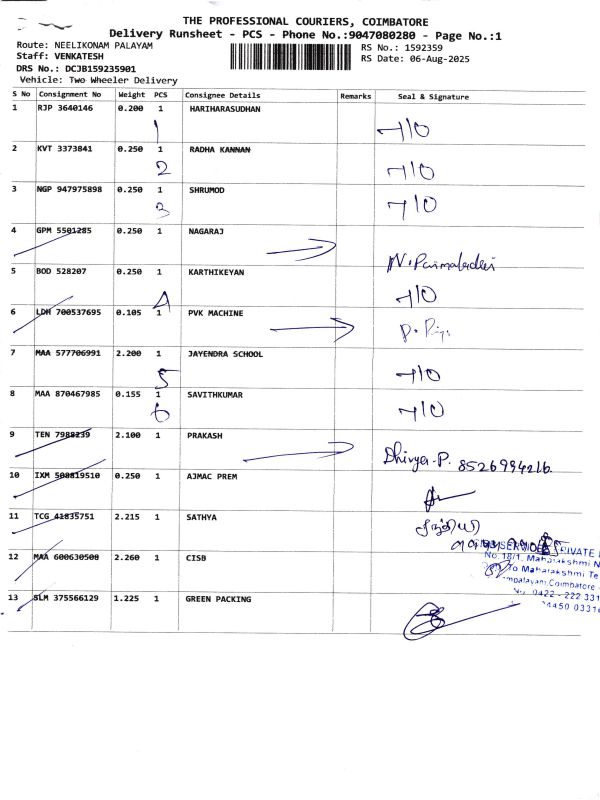 THE PROFESSIONAL COURIERS, COIMBATORE
Delivery Runsheet - PCS - Phone No.:9047080280 - Page No.:1
Route: NEELIKONAM PALAYAM
RS No.: 1592359
Staff: VENKATESH
RS Date: 06-Aug-2025
DRS No.: DCJB159235901
Vehicle: Two Wheeler Delivery
S No Consignment No Weight PCS Consignee Details Remarks Seal & Signature
1 RJP 3640146 0.200 1 HARIHARASUDHAN
1
2 KVT 3373841 0.250 1 RADHA KANNAN
2
3 NGP 947975898 0.250 1 SHRUMOD
3
4 GPM 5501285 0.250 1 NAGARAJ
5 BOD 528207 0.250 1 KARTHIKEYAN
4
6 LDH 700537695 0.105 1 PVK MACHINE
7 MAA 577706991 2.200 1 JAYENDRA SCHOOL
5
8 MAA 870467985 0.155 1 SAVITHKUMAR
6
9 TEN 7988239 2.100 1 PRAKASH
Dhivya-P. 8526994216.
10 IXM 508819510 0.250 1 AJMAC PREM
11 TCG 41835751 2.215 1 SATHYA
12 MAA 600630508 2.260 1 CISB
No. 18/1, Mahalakshmi N
Mahalakshmi Te
Coimbatore
0422 - 222 331
13 SLM 375566129 1.225 1 GREEN PACKING